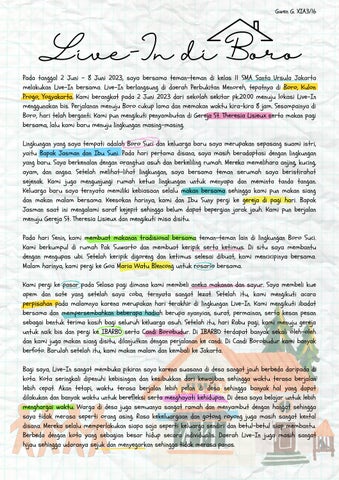 Gwen G. XIA3/16
Live-In di Boro
Pada tanggal 2 Juni - 8 Juni 2023, saya bersama teman-teman di kelas 11 SMA Santa Ursula Jakarta
melakukan Live-In bersama. Live-In berlangsung di daerah Perbukitan Menoreh, tepatnya di Boro, Kulon
Progo, Yogyakarta. Kami berangkat pada 2 Juni 2023 dari sekolah sekitar pk.20.00 menuju lokasi Live-In
menggunakan bis. Perjalanan menuju Boro cukup lama dan memakan waktu kira-kira 8 jam. Sesampainya di
Boro, hari telah berganti. Kami pun mengikuti penyambutan di Gereja St. Theresia Lisieux serta makan pagi
bersama, lalu kami baru menuju lingkungan masing-masing.
Lingkungan yang saya tempati adalah Boro Suci dan keluarga baru saya merupakan sepasang suami istri,
yaitu Bapak Jasman dan Ibu Suni. Pada hari pertama disana, saya masih beradaptasi dengan lingkungan
yang baru. Saya berkenalan dengan orangtua asuh dan berkeliling rumah. Mereka memelihara anjing, kucing,
ayam, dan angsa. Setelah melihat-lihat lingkungan, saya bersama teman serumah saya beristirahat
sejenak. Kami juga mengunjungi rumah ketua lingkungan untuk menyapa dan meminta tanda tangan.
Keluarga baru saya ternyata memiliki kebiasaan selalu makan bersama sehingga kami pun makan siang
dan makan malam bersama. Keesokan harinya, kami dan Ibu Suny pergi ke gereja di pagi hari. Bapak
Jasman saat ini mengalami saraf kejepit sehingga belum dapat bepergian jarak jauh. Kami pun berjalan
menuju Gereja St. Theresia Lisieux dan mengikuti misa disitu.
Pada hari Senin, kami membuat makanan tradisional bersama teman-teman lain di lingkungan Boro Suci.
Kami berkumpul di rumah Pak Suwarto dan membuat keripik serta ketimus. Di situ saya membantu
dengan mengupas ubi. Setelah keripik digoreng dan ketimus selesai dibuat, kami mencicipinya bersama.
Malam harinya, kami pergi ke Goa Maria Watu Blencong untuk rosario bersama.
Kami pergi ke pasar pada Selasa pagi dimana kami membeli aneka makanan dan sayur. Saya membeli kue
apem dan sate yang setelah saya coba, ternyata sangat lezat. Setelah itu, kami mengikuti acara
perpisahan pada malamnya karena merupakan hari terakhir di lingkungan Live-In. Kami mengikuti ibadat
bersama dan mempersembahkan beberapa hadiah berupa nyanyian, surat, permainan, serta kesan pesan
sebagai bentuk terima kasih bagi seluruh keluarga asuh. Setelah itu, hari Rabu pagi, kami menuju gereja
untuk naik bis dan pergi ke IBARBO serta Candi Borobudur. Di IBARBO terdapat banyak sekali oleh-oleh
dan kami juga makan siang disitu, dilanjutkan dengan perjalanan ke candi. Di Candi Borobudur kami banyak
berfoto. Barulah setelah itu, kami makan malam dan kembali ke Jakarta.
Bagi saya, Live-In sangat membuka pikiran saya karena suasana di desa sangat jauh berbeda daripada di
kota. Kota seringkali dipenuhi kebisingan dan kesibukan dari keramaian sehingga waktu terasa berjalan
lebih cepat. Akan tetapi, waktu terasa berjalan lebih pelan di desa sehingga banyak hal yang dapat
dilakukan dan banyak waktu untuk berefleksi serta menghayati kehidupan. Di desa saya belajar untuk lebih
menghargai waktu. Warga di desa juga semuanya sangat ramah dan menyambut dengan hangat sehingga
saya tidak merasa seperti orang asing. Rasa kekeluargaan dan gotong royong juga masih sangat kental
disana. Mereka selalu memperlakukan siapa saja seperti keluarga sendiri dan betul-betul saling membantu.
Berbeda dengan kota yang sebagian besar hidup secara individualis. Daerah Live-In juga masih sangat
hijau sehingga udaranya sejuk dan menyegarkan sehingga tidak merasa panas.